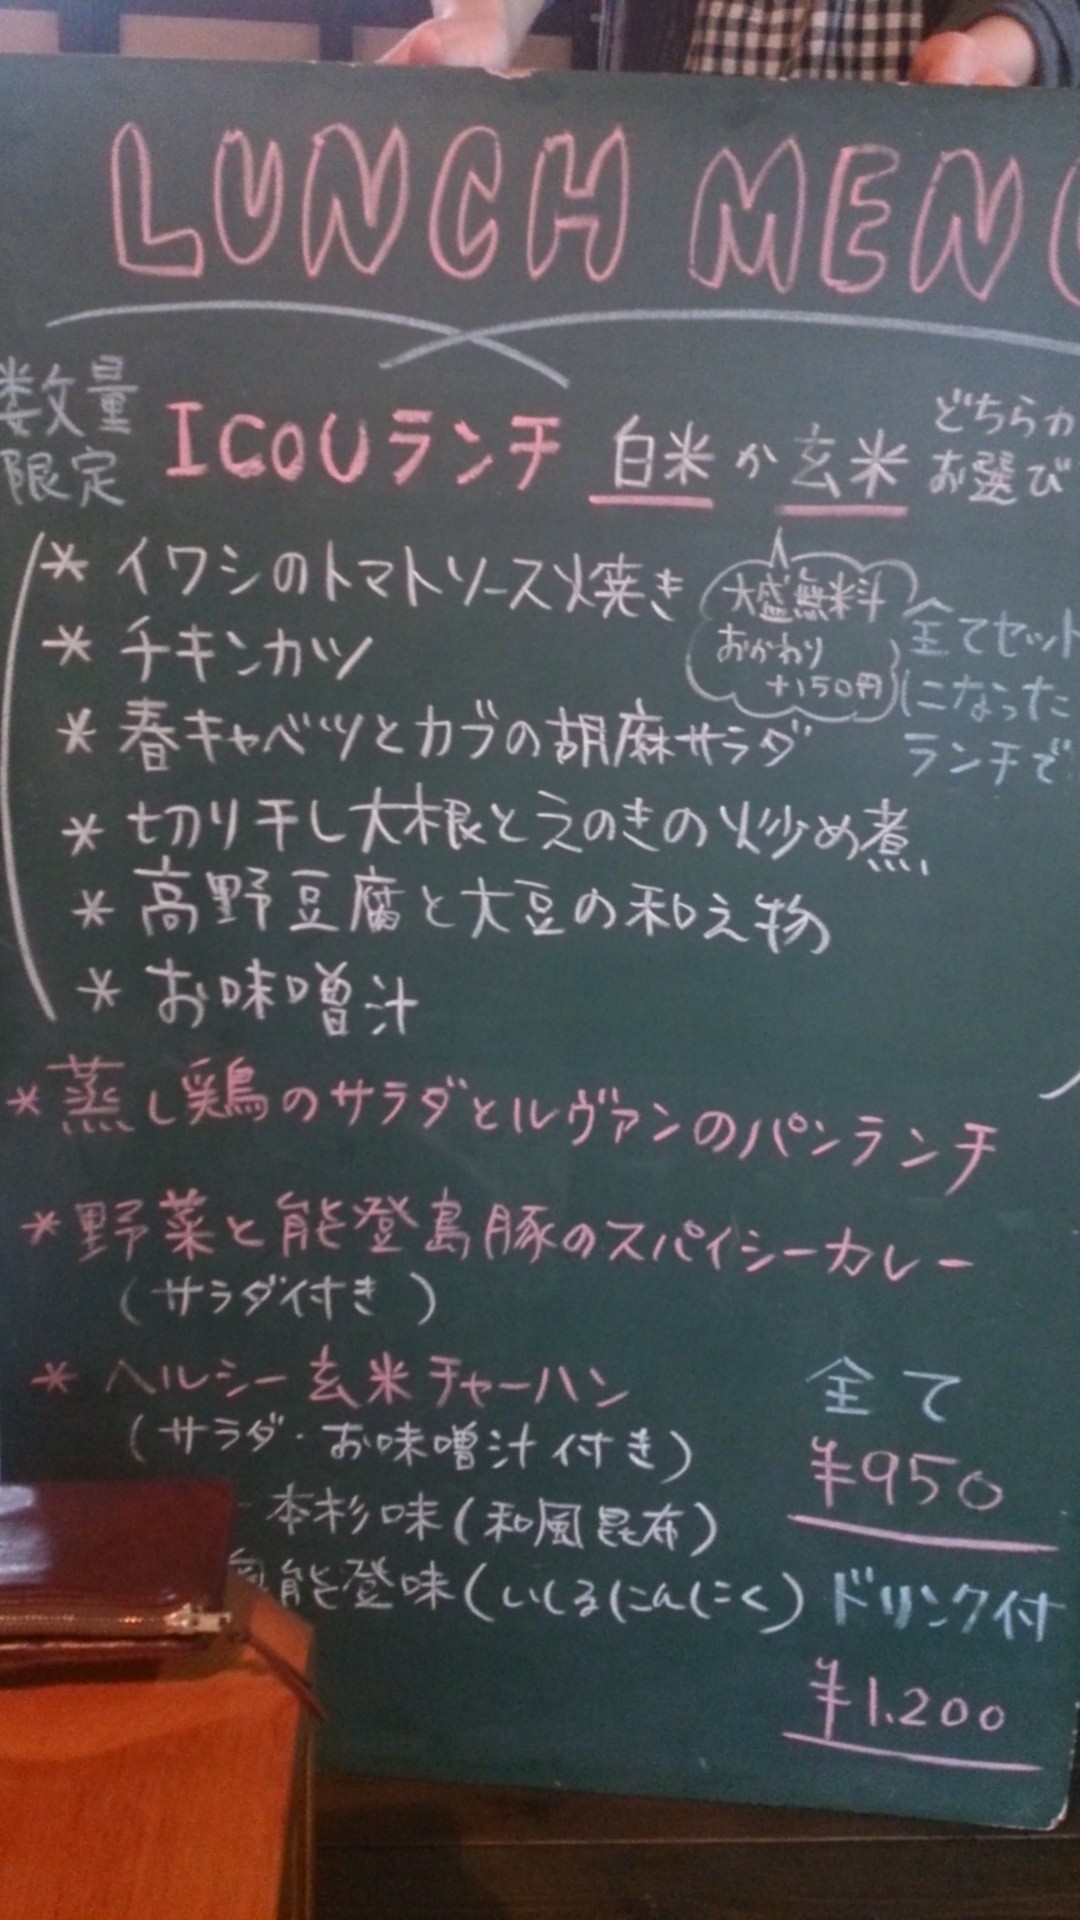 LUNCH MENU
数量
限定
ICOUランチ 白米か玄米
どちらか
お選び
* イワシのトマトソース焼き
大盛無料
おかわり
+150円
全てセット
になった
ランチで
* チキンカツ
* 春キャベツとカブの胡麻サラダ
* 切り干し大根とえのきの炒め煮
* 高野豆腐と大豆の和え物
* お味噌汁
* 蒸し鶏のサラダとルヴァンのパンランチ
* 野菜と能登島豚のスパイシーカレー
(サラダ付き)
* ヘルシー玄米チャーハン
(サラダ・お味噌汁付き)
一本杉味(和風昆布)
奥能登味(いしるにんにく)
全て
¥950
ドリンク付
¥1.200